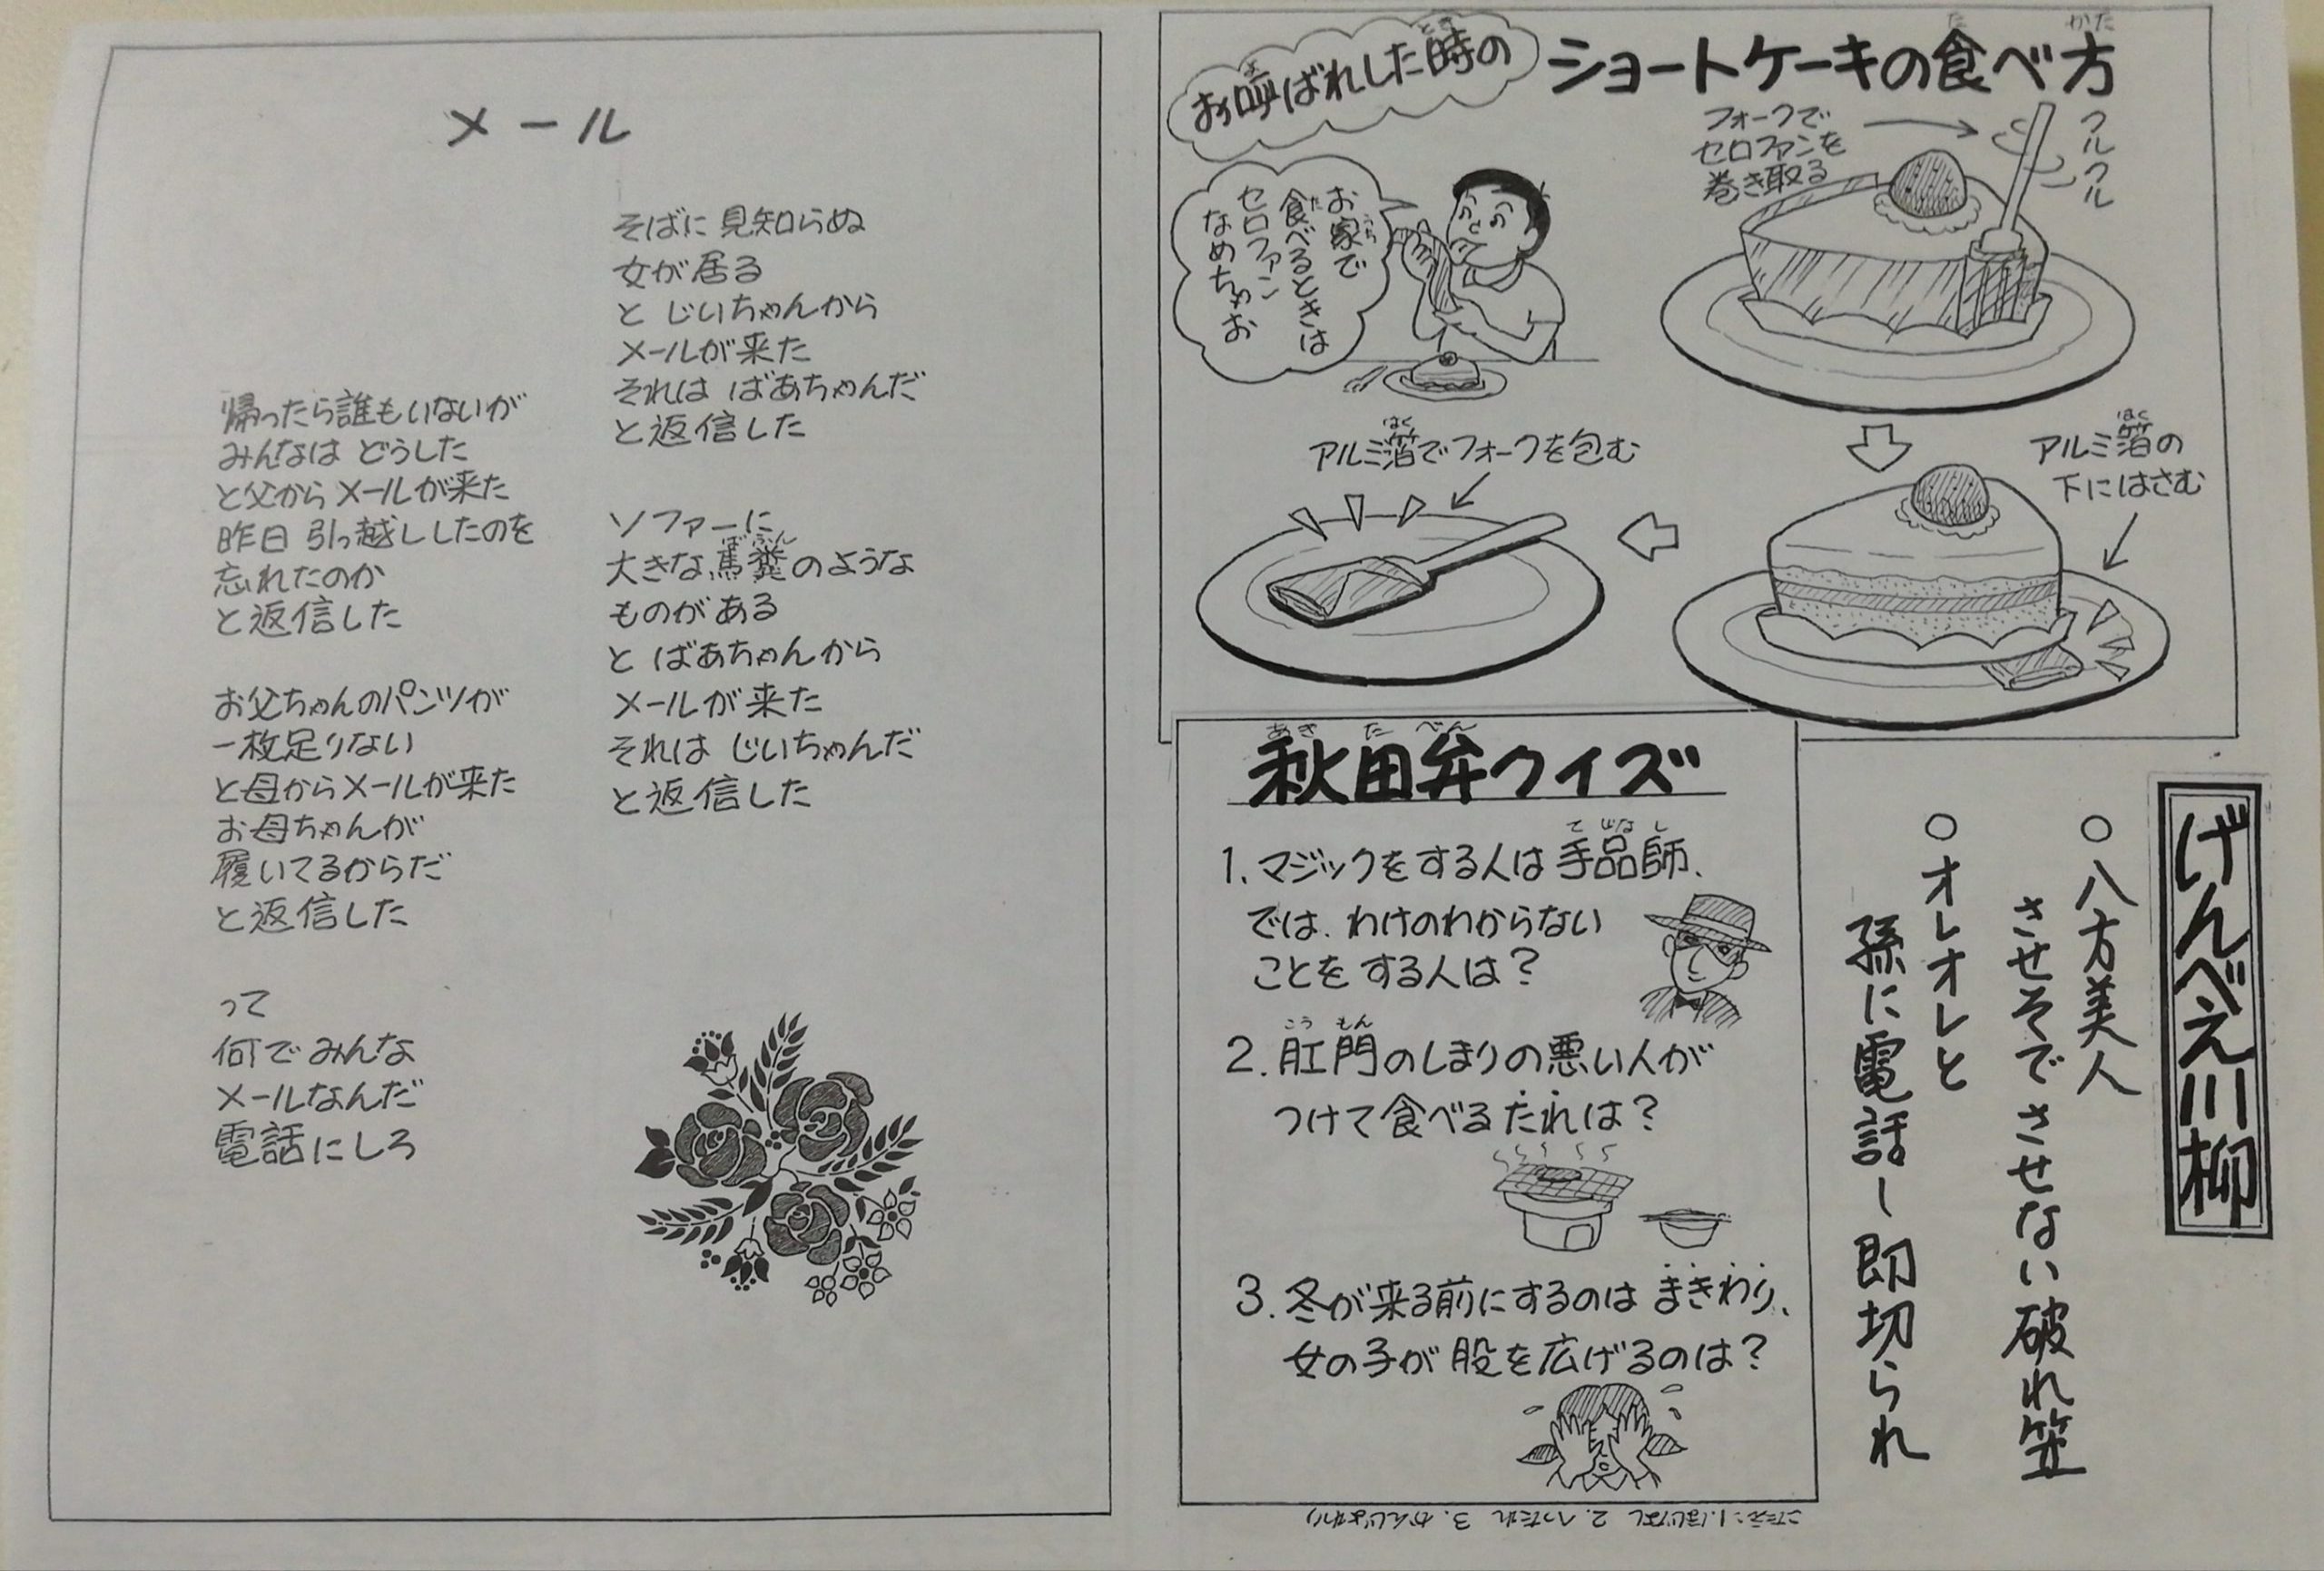 メール
そばに 見知らぬ
女が居る
と じいちゃんから
メールが来た
それは ばあちゃんだ
と返信した
ソファーに
大きな馬糞のような
ばふん
ものがある
と ばあちゃんから
メールが来た
それは じいちゃんだ
と返信した
帰ったら誰もいないが
みんなは どうした
と父からメールが来た
昨日 引っ越ししたのを
忘れたのか
と返信した
お父ちゃんのパンツが
一枚足りない
と母からメールが来た
お母ちゃんが
履いてるからだ
と返信した
って
何でみんな
メールなんだ
電話にしろ
お呼ばれした時の
よ
とき
ショートケーキの食べ方
た
かた
フォークで
セロファンを
巻き取る
クルクル
お家で
うち
食べるときは
た
セロファン
なめちゃお
アルミ箔の
はく
下にはさむ
アルミ箔でフォークを包む
はく
秋田弁クイズ
あき た べん
1. マジックをする人は手品師、
てじなし
では、わけのわからない
ことをする人は?
2. 肛門のしまりの悪い人が
こうもん
つけて食べるたれは?
3. 冬が来る前にするのはまきわり、
女の子が股を広げるのは?
こたえ:1.ほじなし 2.へったれ 3.がんじょわり
げんべえ川柳
○八方美人
させそでさせない破れ笠
○オレオレと
孫に電話し即切られ